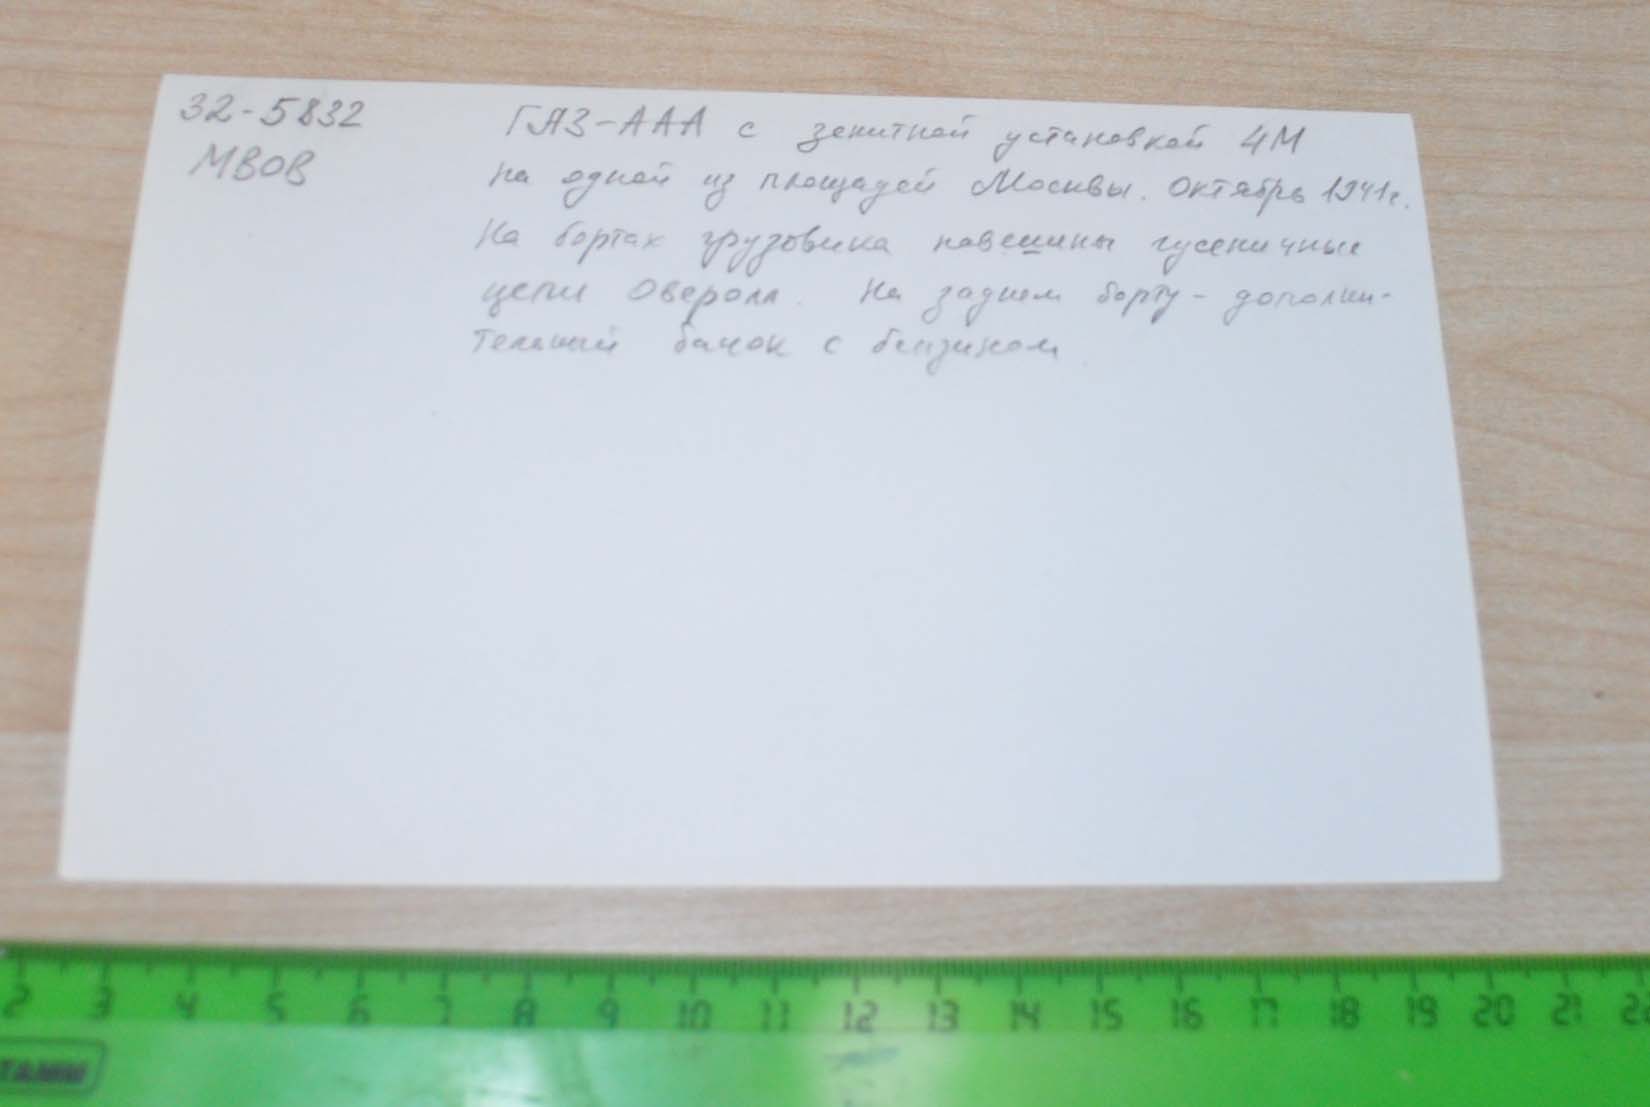 32-5832
МВОВ
ГАЗ-ААА с зенитной установкой 4М
на одной из площадей Москвы. Октябрь 1941г.
На бортах грузовика навешины гусеничные
цепи Оверолл. На заднем борту - дополни-
тельный бачок с бензином
2 3 4 5 6 7 8 9 10 11 12 13 14 15 16 17 18 19 20 21
ТАММ